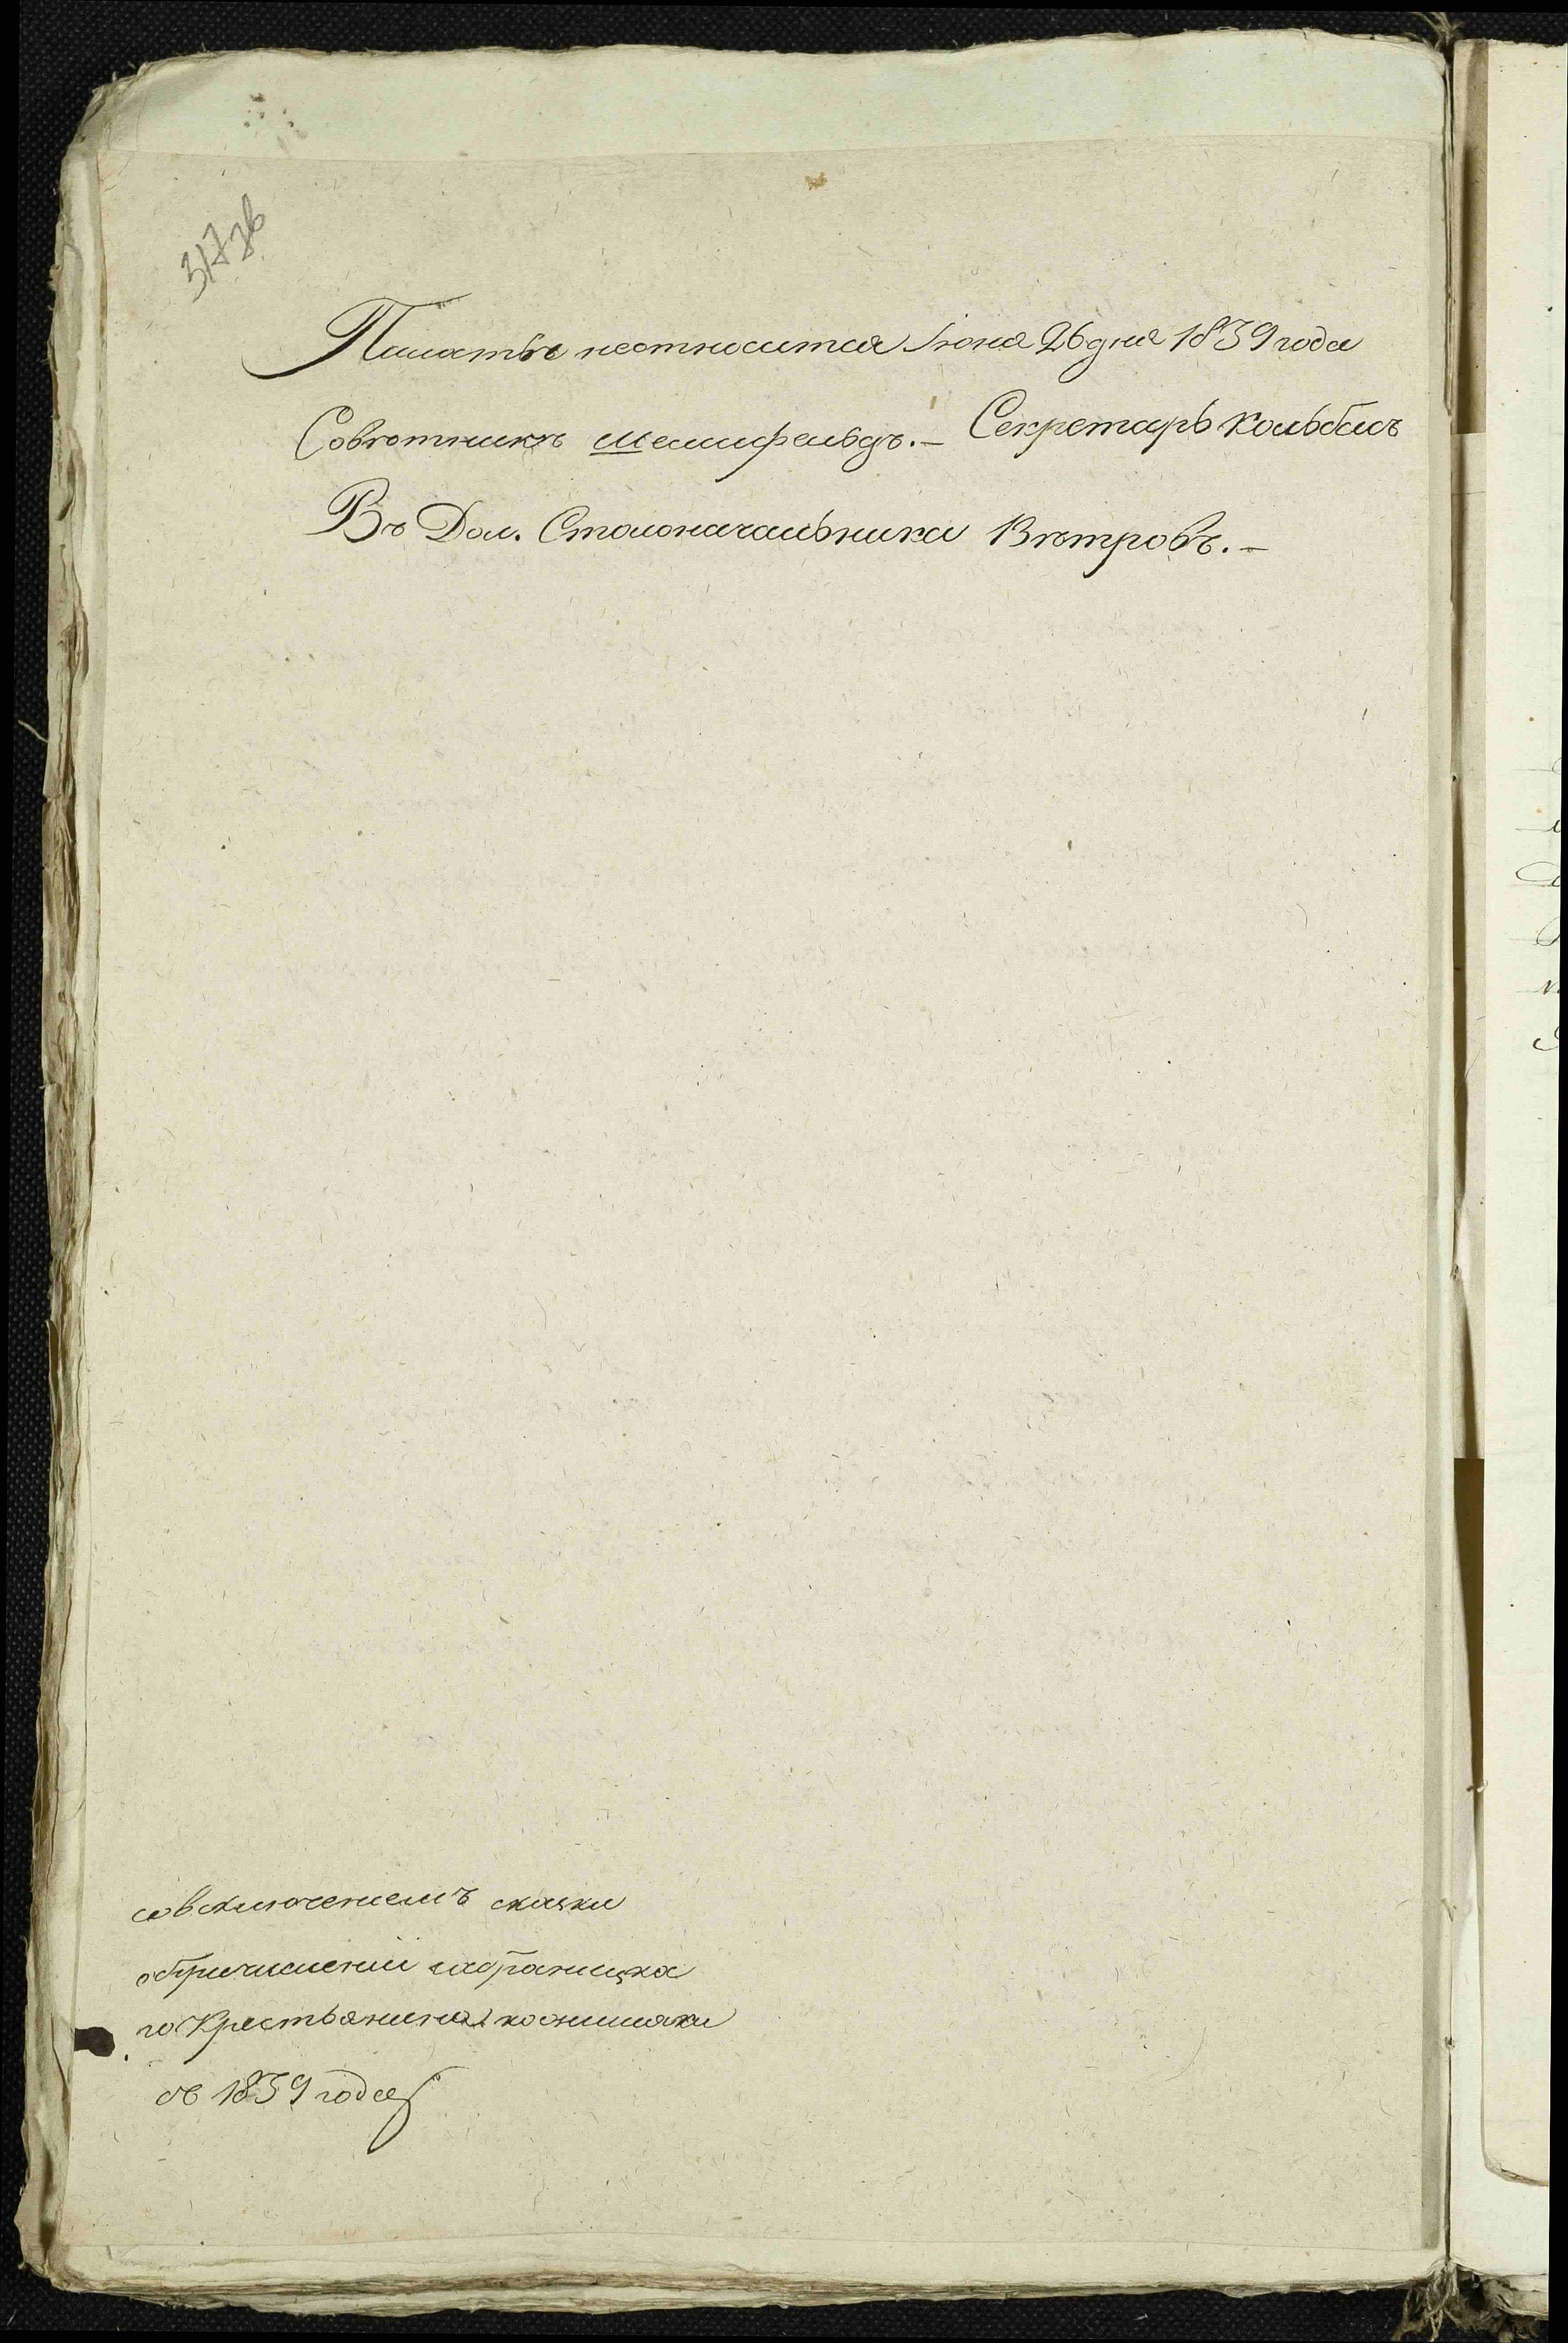 317 зв
Палатѣ неотносится Іюня 26 дня 1839 года
Совѣтникъ Шешифельдъ.– Секретарь Кольбасъ
Въ Дол. Столоначальника Вѣтровъ.–
совключеніемъ сказки
о причисленіи
го Крестьянина
съ 1839 года